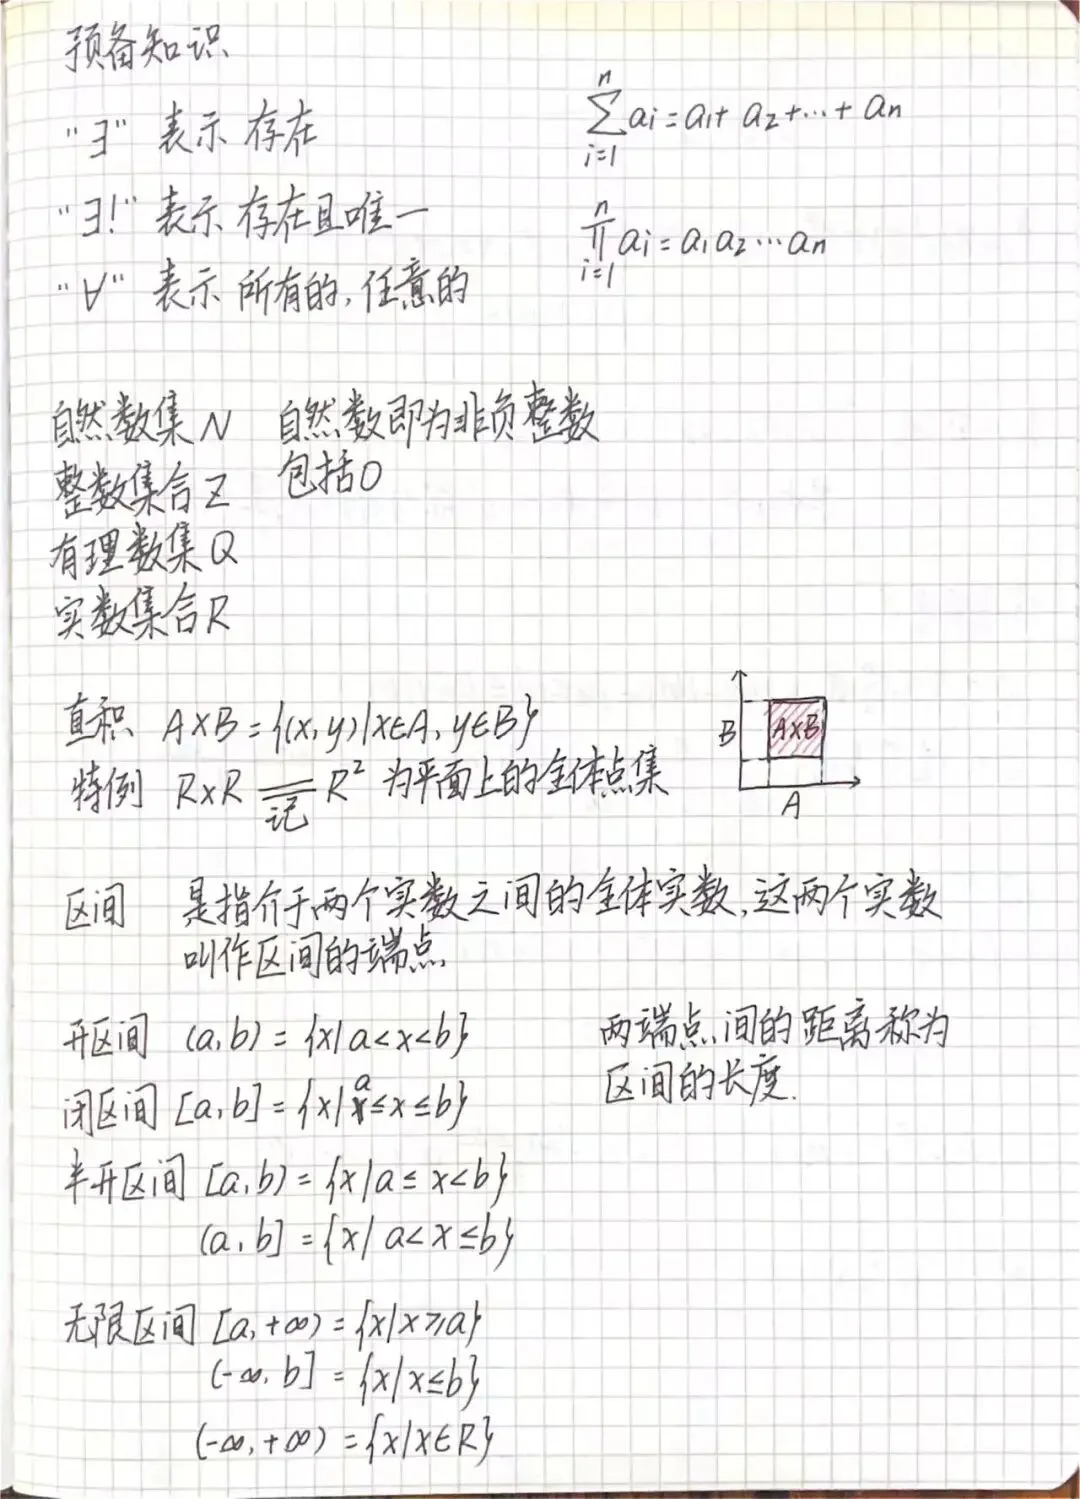 预备知识
"∃" 表示 存在
"∃!" 表示 存在且唯一
"∀" 表示 所有的,任意的
n
∑ ai = a1 + a2 + ··· + an
i=1
n
∏ ai = a1 a2 ··· an
i=1
自然数集 N 自然数即为非负整数
包括0
整数集合 Z
有理数集 Q
实数集合 R
直积 A×B = {(x,y)|x∈A, y∈B}
特例 R×R ═ R² 为平面上的全体点集
记
B
A×B
A
区间 是指介于两个实数之间的全体实数,这两个实数
叫作区间的端点.
开区间 (a,b) = {x| a<x<b}
闭区间 [a,b] = {x| a≤x≤b}
半开区间 [a,b) = {x| a≤x<b}
(a,b] = {x| a<x≤b}
两端点间的距离称为
区间的长度.
无限区间 [a,+∞) = {x|x⩾a}
(-∞,b] = {x|x≤b}
(-∞,+∞) = {x|x∈R}